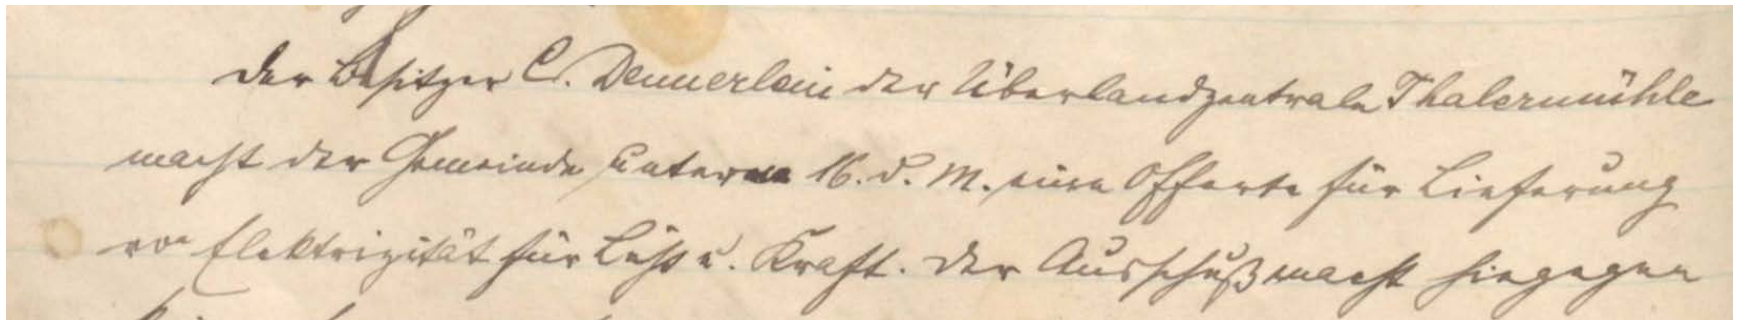 Der Besitzer C. Dennerlein der Überlandzentrale Thalermühle
macht der Gemeinde unterm 16. d. M. eine Offerte für Lieferung
von Elektrizität für Licht u. Kraft. Der Ausschuß macht hingegen